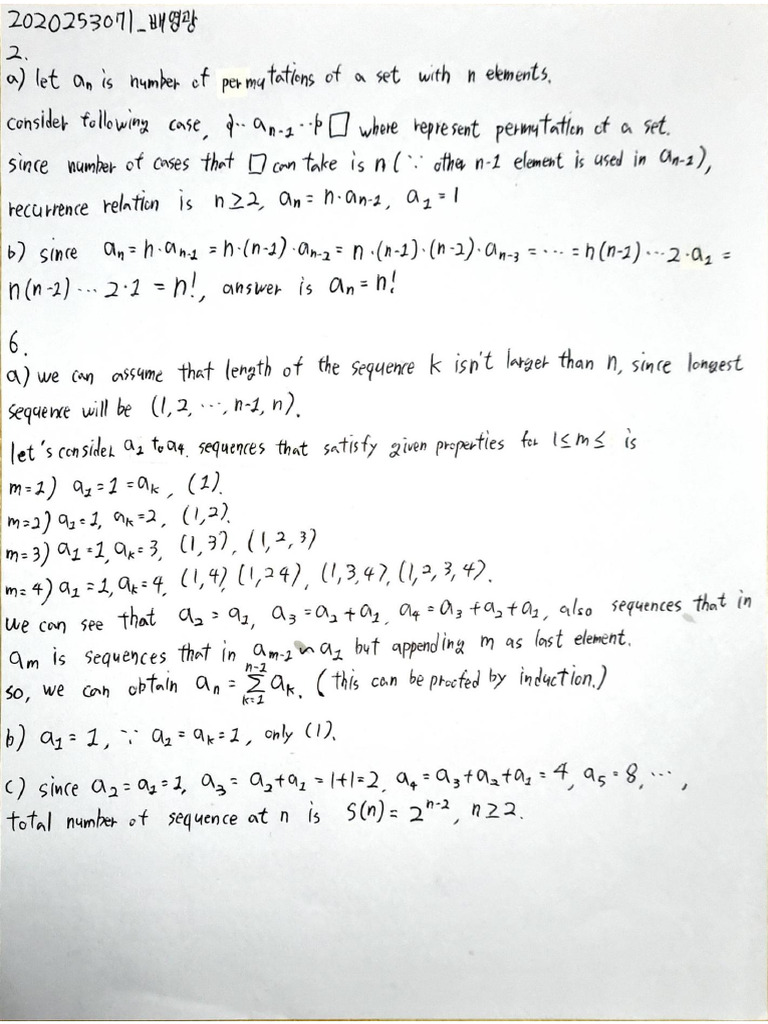 2020253071_배영광
2.
a) let an is number of permutations of a set with n elements.
consider following case, d·· an-1 ··b □ where represent permutation of a set.
since number of cases that □ can take is n (∵ other n-1 element is used in an-1),
recurrence relation is n≥2, an = n·an-1, a1 = 1
b) since an = n·an-1 = n·(n-1)·an-2 = n·(n-1)·(n-2)·an-3 = ··· = n(n-1)···2·a1 =
n(n-1)···2·1 = n!, answer is an = n!
6.
a) we can assume that length of the sequence k isn't larger than n, since longest
sequence will be (1,2,···,n-1,n).
let's consider a1 to a4. sequences that satisfy given properties for 1≤m≤ is
m=1) a1=1=ak, (1).
m=2) a1=1, ak=2, (1,2).
m=3) a1=1, ak=3, (1,3), (1,2,3)
m=4) a1=1, ak=4, (1,4) (1,24), (1,3,4), (1,2,3,4).
we can see that a2 = a1, a3 = a2+a1, a4 = a3+a2+a1, also sequences that in
am is sequences that in am-1 ~ a1 but appending m as last element.
so, we can obtain an = Σ k=1 n-1 ak. (this can be proofed by induction.)
b) a1 = 1, ∵ a1 = ak = 1, only (1).
c) since a2=a1=1, a3=a2+a1=1+1=2, a4=a3+a2+a1=4, a5=8, ···,
total number of sequence at n is S(n) = 2^n-2, n≥2.